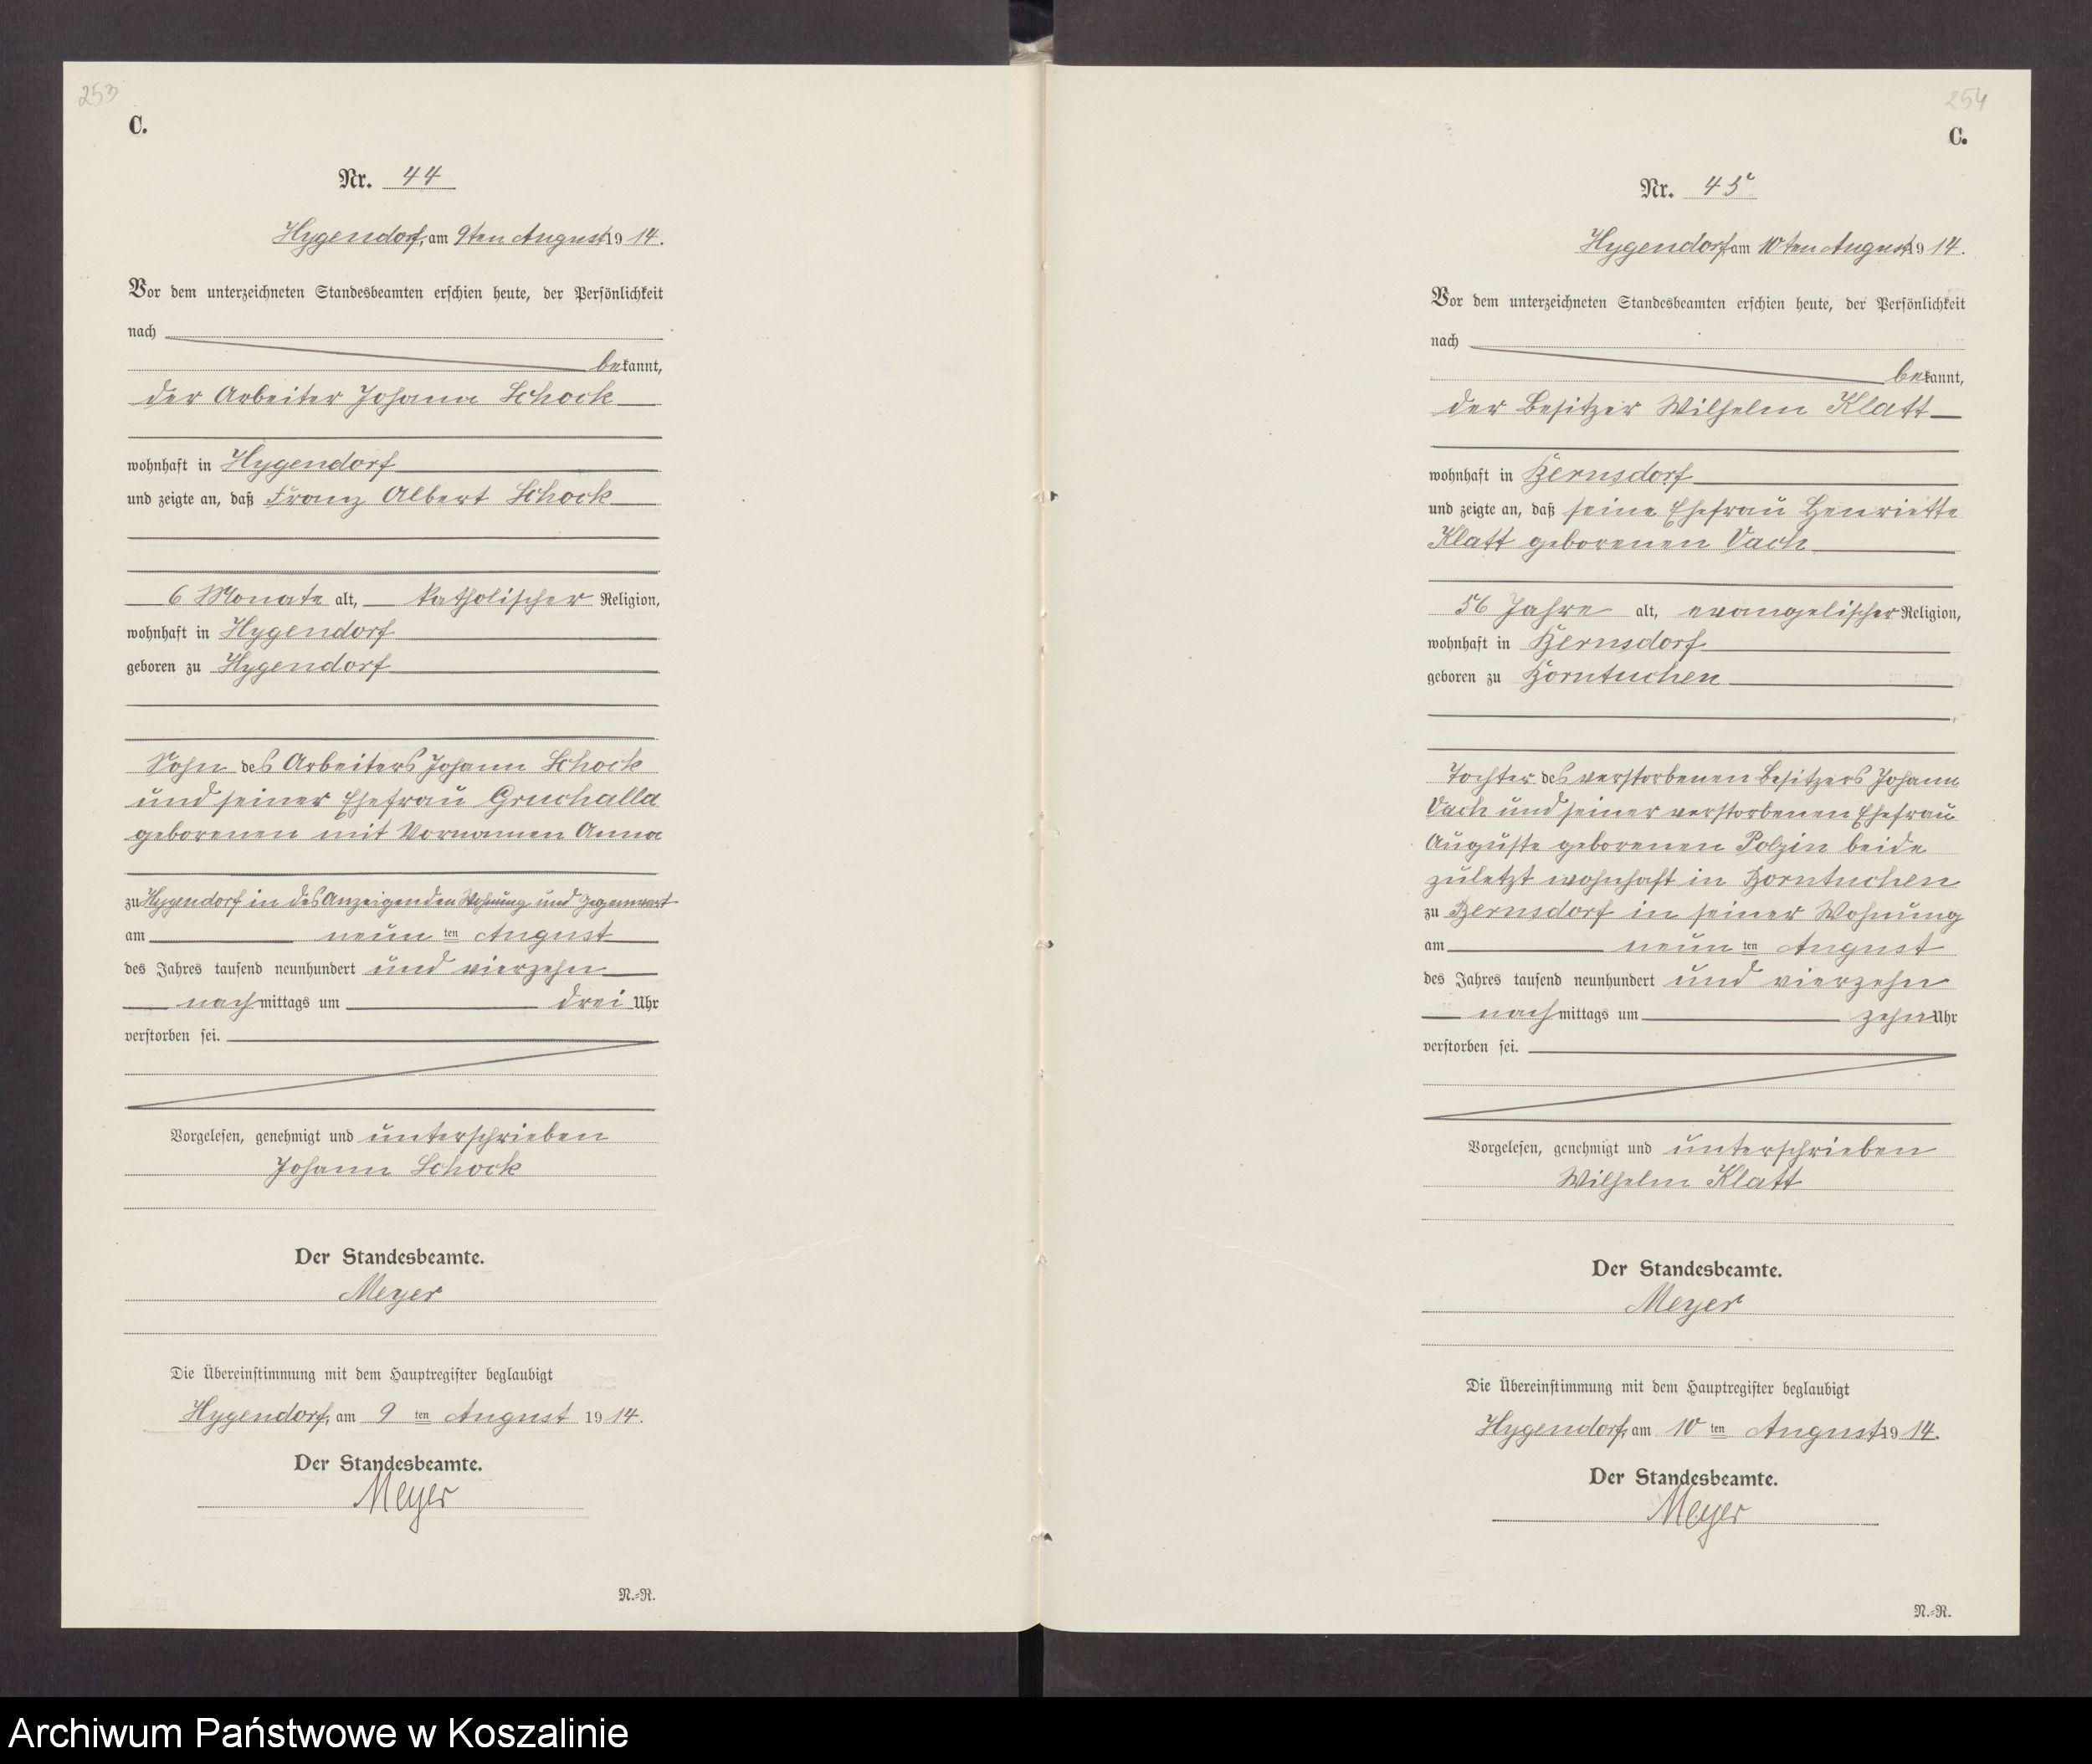 253
C.
Nr. 44
Hygendorf, am 9ten August 1914.
Vor dem unterzeichneten Standesbeamten erschien heute, der Persönlichkeit
nach
bekannt,
der Arbeiter Johann Schock
wohnhaft in Hygendorf
und zeigte an, daß Franz Albert Schock
6 Monate alt, katholischer Religion,
wohnhaft in Hygendorf
geboren zu Hygendorf
Sohn des Arbeiters Johann Schock
und seiner Ehefrau Gruchalla
geborenen mit Vornamen Anna
zu Hygendorf in des Anzeigenden Wohnung und Gegenwart
am neunten August
des Jahres tausend neunhundert und vierzehn
nachmittags um drei Uhr
verstorben sei.
Vorgelesen, genehmigt und unterschrieben
Johann Schock
Der Standesbeamte.
Meyer
Die Übereinstimmung mit dem Hauptregister beglaubigt
Hygendorf, am 9ten August 1914.
Der Standesbeamte.
Meyer
N.=R.
254
C.
Nr. 45
Hygendorf am 10ten August 1914.
Vor dem unterzeichneten Standesbeamten erschien heute, der Persönlichkeit
nach
bekannt,
der Besitzer Wilhelm Klatt
wohnhaft in Bernsdorf
und zeigte an, daß seine Ehefrau Henriette
Klatt geborenen Vach
56 Jahre alt, evangelischer Religion,
wohnhaft in Bernsdorf
geboren zu Borntuchen
Tochter des verstorbenen Besitzers Johann
Vach und seiner verstorbenen Ehefrau
Auguste geborenen Polzin beide
zuletzt wohnhaft in Borntuchen
zu Bernsdorf in seiner Wohnung
am neunten August
des Jahres tausend neunhundert und vierzehn
nachmittags um zehn Uhr
verstorben sei.
Vorgelesen, genehmigt und unterschrieben
Wilhelm Klatt
Der Standesbeamte.
Meyer
Die Übereinstimmung mit dem Hauptregister beglaubigt
Hygendorf, am 10ten August 1914.
Der Standesbeamte.
Meyer
N.=R.
Archiwum Państwowe w Koszalinie